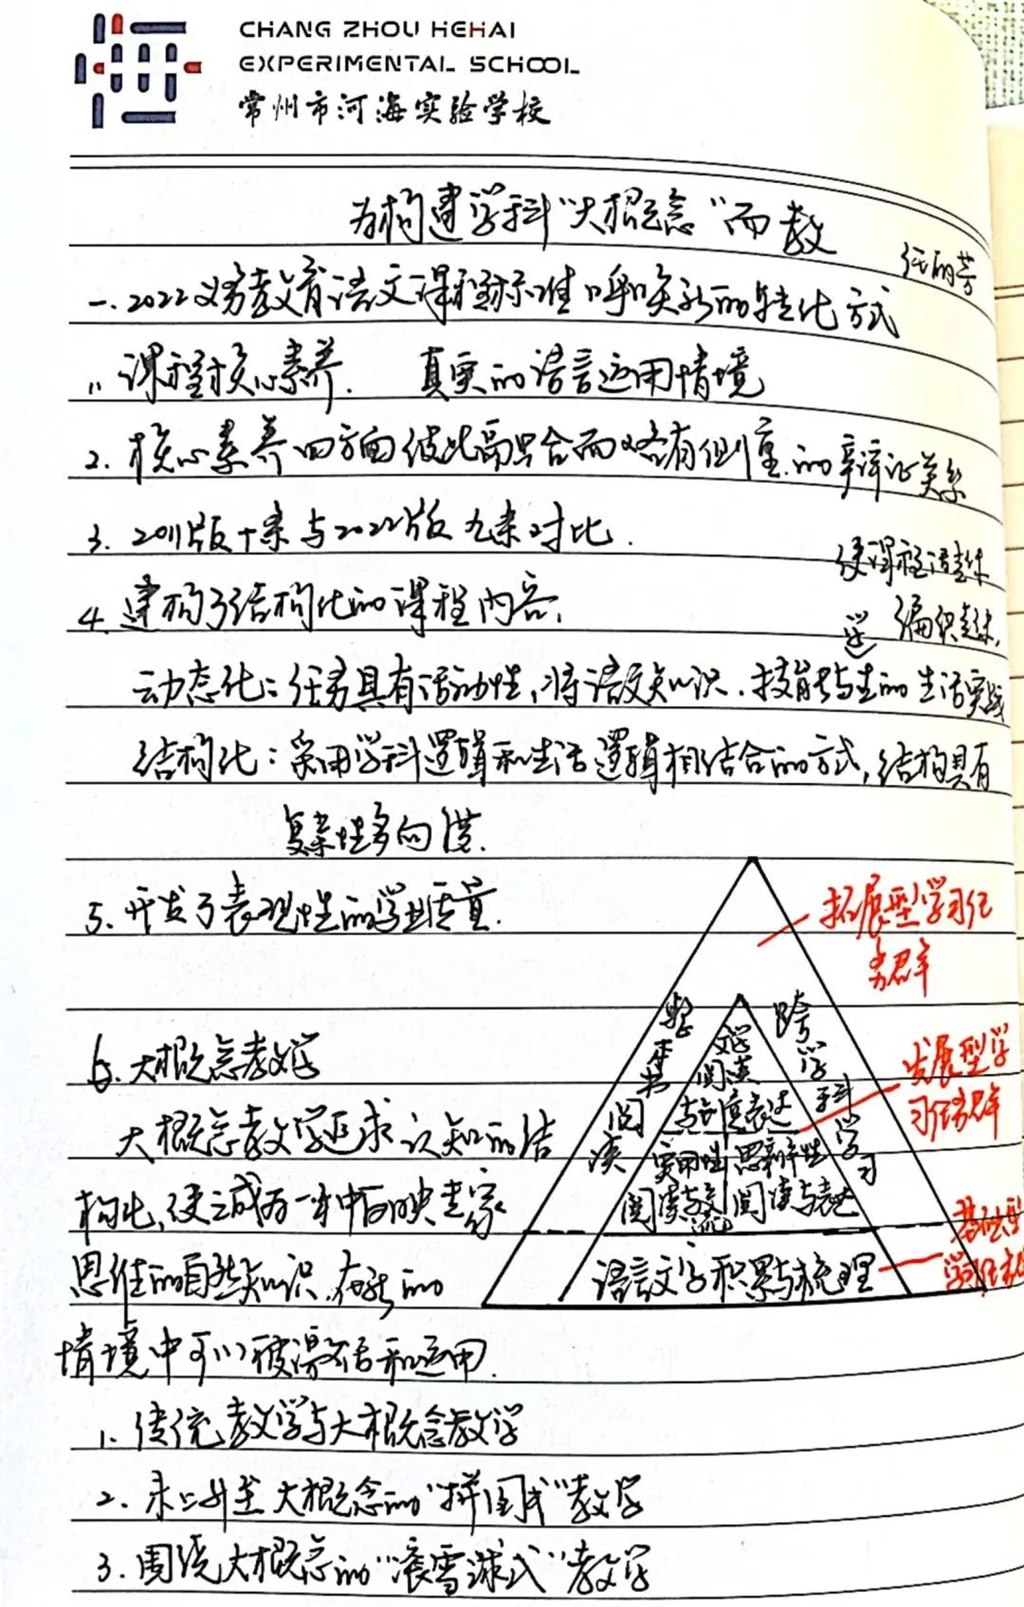 CHANG ZHOU HEHAI
EXPERIMENTAL SCHOOL
常州市河海实验学校
为构建学科“大概念”而教
任丽芳
一.2022义务教育语文课程标准呼唤新的转化方式
1.课程核心素养. 真实的语言运用情境
2.核心素养四方面彼此融合而又各有侧重的辩证关系
3.2011版十条与2022版九条对比.
4.建构了结构化的课程内容.
使课程活起来
编织起来,
动态化:任务具有活动性,将语文知识.技能与学生的生活实践
结构化:采用学科逻辑和生活逻辑相结合的方式,结构具有
复杂性多向度.
5.开发了表现性的学业质量.
拓展型学习任
务群
整本书阅读
跨学科学习
文学
阅读
与创意表达
实用性
阅读与交流
思辨性
阅读与表达
语言文字积累与梳理
发展型学
习任务群
基础型
6.大概念教学
大概念教学追求认知的结
构化,使之成为一种可反映专家
思维的自然知识.在新的
情境中可以被激活和运用.
1.传统教学与大概念教学
2.上升至大概念的“拼图式”教学
3.围绕大概念的“滚雪球式”教学